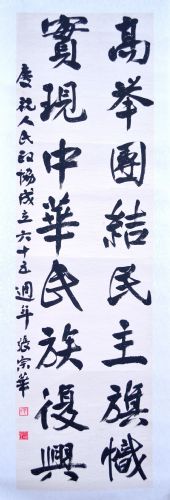 高举團結民主旗幟
實現中華民族復興
慶祝人民政協成立六十五週年 張宗華